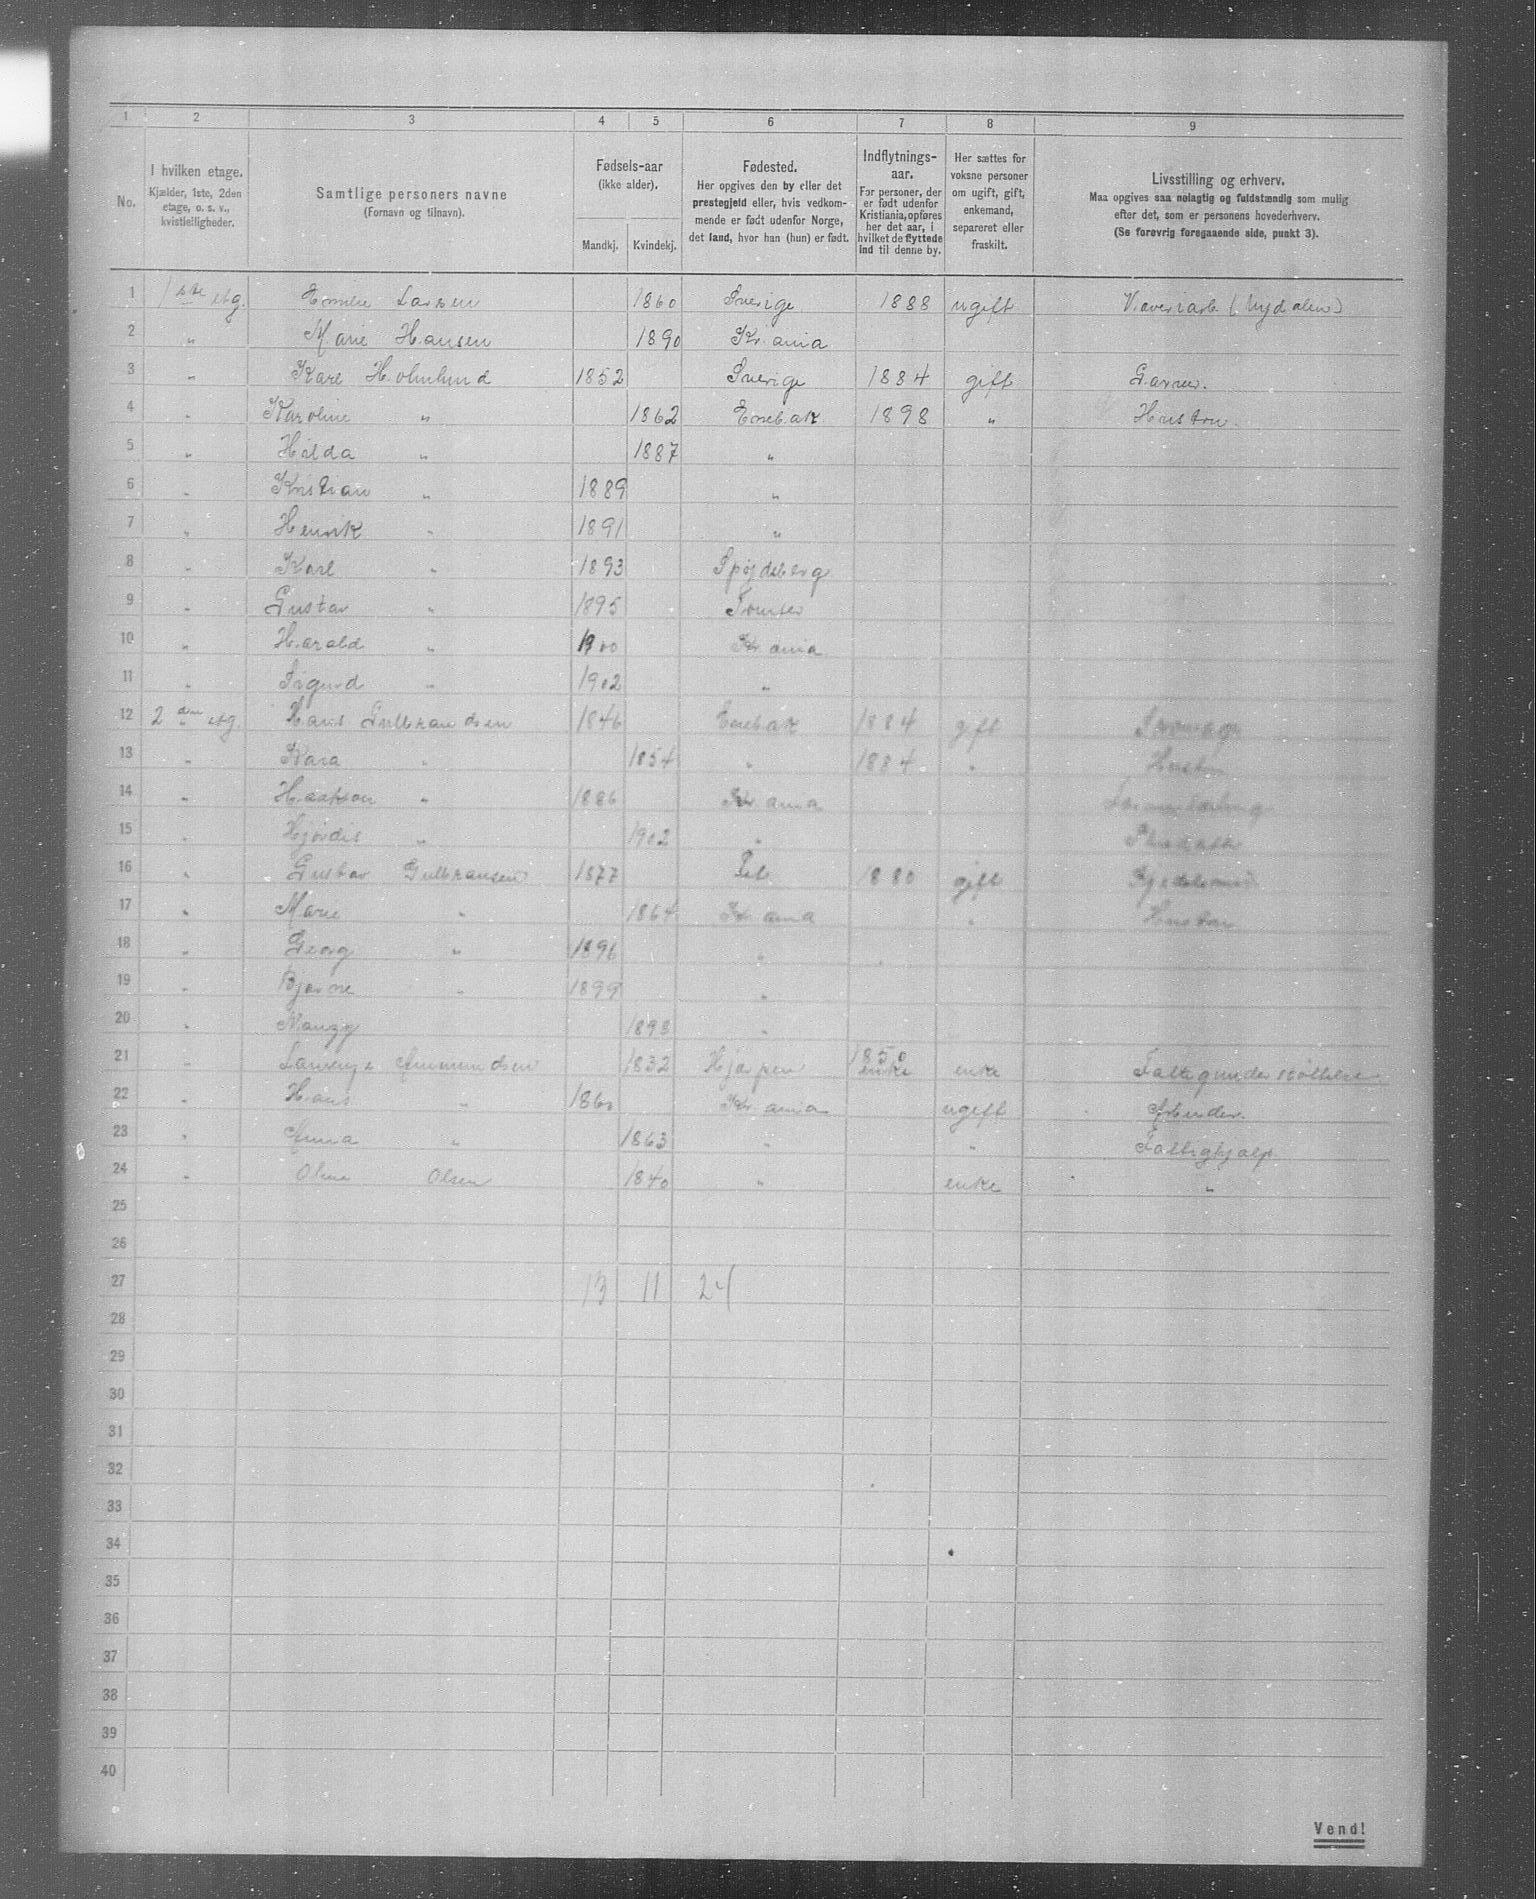 1 2 3 4 5 6 7 8 9
No.
I hvilken etage.
Kjælder, 1ste, 2den
etage, o. s. v.,
kvistleiligheder.
Samtlige personers navne
(Fornavn og tilnavn).
Fødsels-aar
(ikke alder).
Mandkj. Kvindekj.
Fødested.
Her opgives den by eller det
prestegjeld eller, hvis vedkom-
mende er født udenfor Norge,
det land, hvor han (hun) er født.
Indflytnings-
aar.
For personer, der
er født udenfor
Kristiania, opføres
her det aar, i
hvilket de flyttede
ind til denne by.
Her sættes for
voksne personer
om ugift, gift,
enkemand,
separeret eller
fraskilt.
Livsstilling og erhverv.
Maa opgives saa nøiagtig og fuldstændig som mulig
efter det, som er personens hovederhverv.
(Se forøvrig foregaaende side, punkt 3).
1 1ste etg. Larsen 1860 Sverige 1888 ugift (Nydalen)
2 " Marie Hansen 1890 Kr. ania
3 " Karl Holmlund 1852 Sverige 1884 gift Garver.
4 " Karoline " 1862 Enebak 1898 " Hustru.
5 " Hilda " 1887 "
6 " Kristian " 1889 "
7 " Henrik " 1891 "
8 " Karl " 1893 Spydeberg
9 " Gustav " 1895 Tomter
10 " Harald " 1900 Kr. ania
11 " Sigurd " 1902 "
12 2den etg. Hans Gulbrandsen 1846 Enebak 1884 gift
13 " Kara " 1854 " 1884 " Hustru
14 " Haakon " 1886 Kr ania
15 " Hjørdis " 1902 "
16 " Gustav Gulbransen 1877 1880 gift
17 " Marie " 1864 Kr ania " Hustru
18 " Georg " 1896 "
19 " Bjarne " 1899 "
20 " Nanzy 1898 "
21 " Amundsen 1832 Hjerpen 1850 enke enke Fattigunderstøttelse
22 " Hans " 1860 Kr ania ugift Arbeider.
23 " Anna " 1863 " " Fattighjælp
24 " Oline Olsen 1840 " enke "
25
26
27 13 11 24
28
29
30
31
32
33
34
35
36
37
38
39
40
Vend!